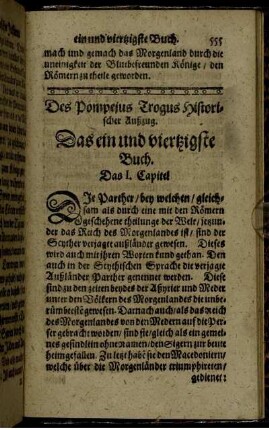 ein und viertzigste Buch. 555
mach und gemach das Morgenland durch die
uneinigkeit der Blutbefreunden Könige / den
Römern zu theile geworden.
Des Pompejus Trogus Histori-
scher Außzug.
Das ein und viertzigste
Buch.
Das I. Capitel
DIe Parther / bey welchen / gleich-
sam als durch eine mit den Römern
geschehene theilunge der Welt / itzun-
der das Reich des Morgenlandes ist / sind der
Scyther verjagte außländer gewesen. Dieses
wird auch mit ihren Worten kund gethan. Den
auch in der Scythischen Sprache die verjagte
Außländer Parther genennet werden. Diese
sind zu den zeiten beydes der Assyrier und Meder
unter den Völckern des Morgenlandes die unbe-
rümbteste gewesen. Darnach auch / als das reich
des Morgenlandes von den Medern auf die Per-
ser gebracht worden / sind sie / gleich als ein gemei-
nes gesindlein ohne Namen / den Siegern zur beute
heimgefallen. Zu letzt habē sie den Macedoniern /
welche über die Morgenländer triumphireten /
gedienet: